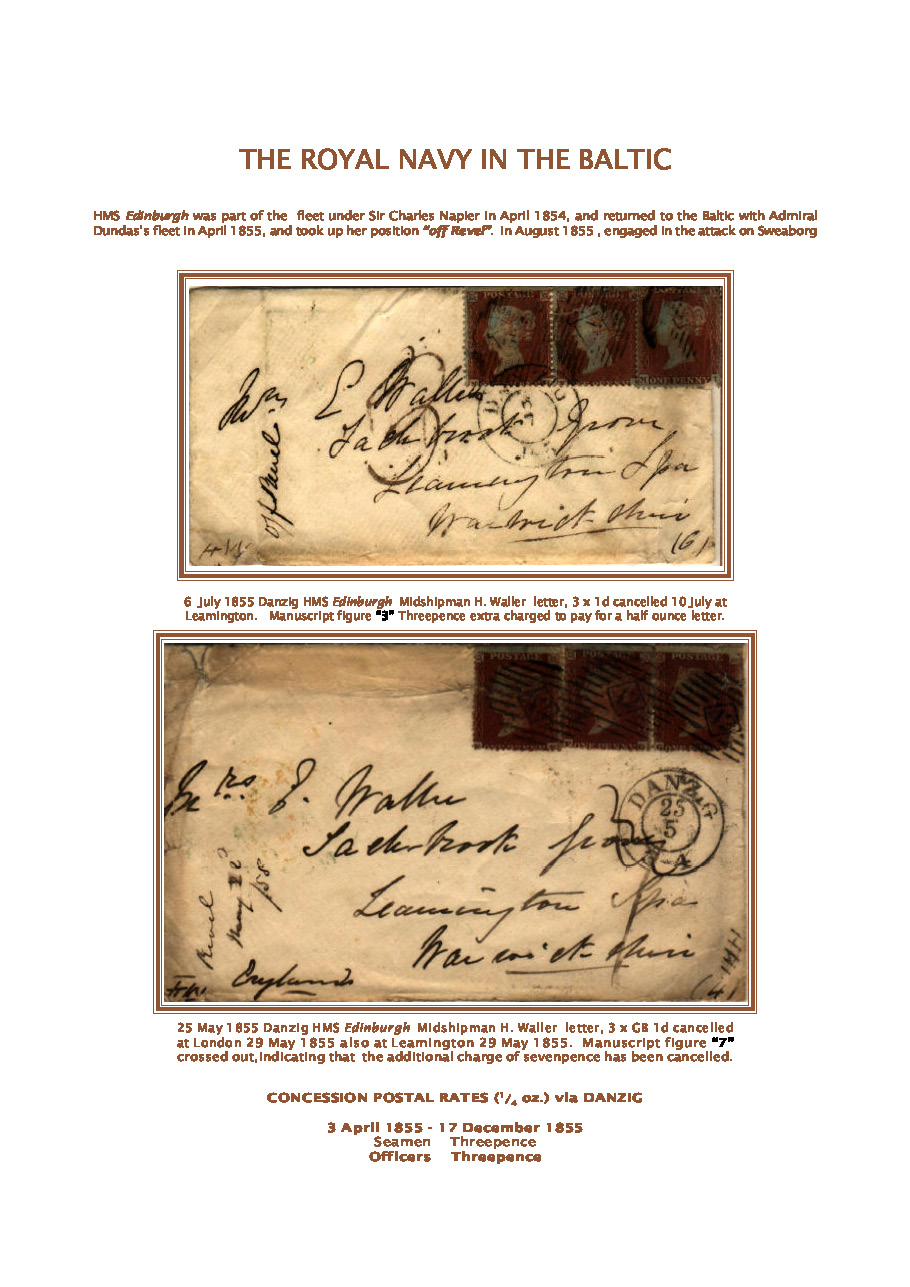 THE ROYAL NAVY IN THE BALTIC
HMS Edinburgh was part of the fleet under Sir Charles Napier in April 1854, and returned to the Baltic with Admiral
Dundas's fleet in April 1855, and took up her position "off Revel". In August 1855 , engaged in the attack on Sweaborg
POSTAGE
ONE PENNY
Mrs E Waller
Sachbrook Grove
Leamington Spa
Warwickshire
off Revel
(6)
6 July 1855 Danzig HMS Edinburgh Midshipman H. Waller letter, 3 x 1d cancelled 10 July at
Leamington. Manuscript figure "3" Threepence extra charged to pay for a half ounce letter.
POSTAGE POSTAGE POSTAGE
DANZIG
25
5
Mrs E. Waller
Sachbrook Grove
Leamington Spa
Warwickshire
England
Revel
May 22
(4)
25 May 1855 Danzig HMS Edinburgh Midshipman H. Waller letter, 3 x GB 1d cancelled
at London 29 May 1855 also at Leamington 29 May 1855. Manuscript figure "7"
crossed out,indicating that the additional charge of sevenpence has been cancelled.
CONCESSION POSTAL RATES (1/4 oz.) via DANZIG
3 April 1855 - 17 December 1855
Seamen Threepence
Officers Threepence